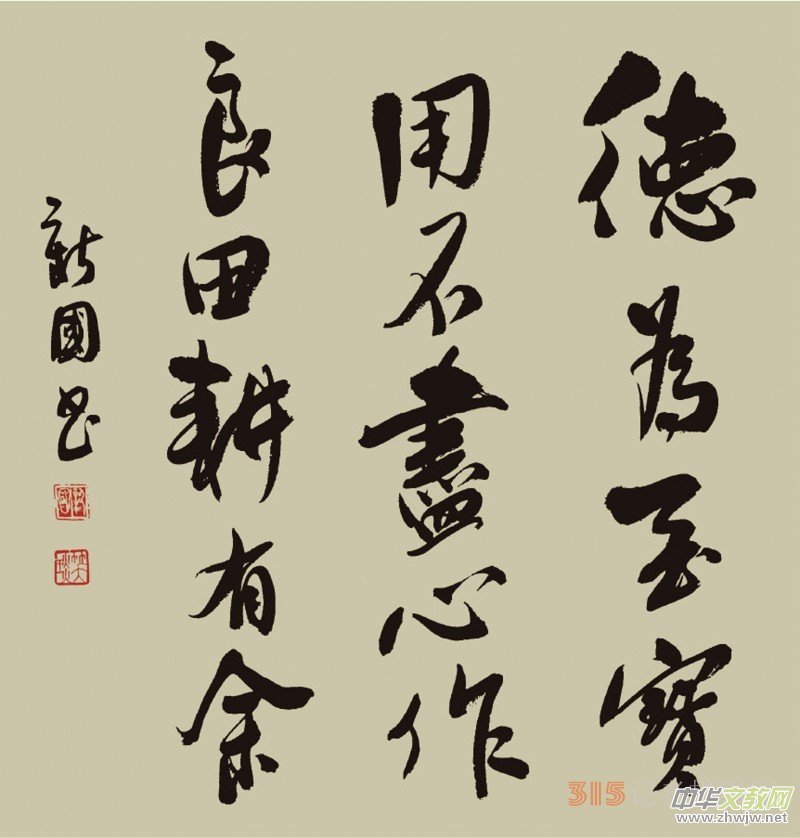 德為至寶
用不盡心作
良田耕有余
新國书
315记
中华文教网
www.zhwjw.net